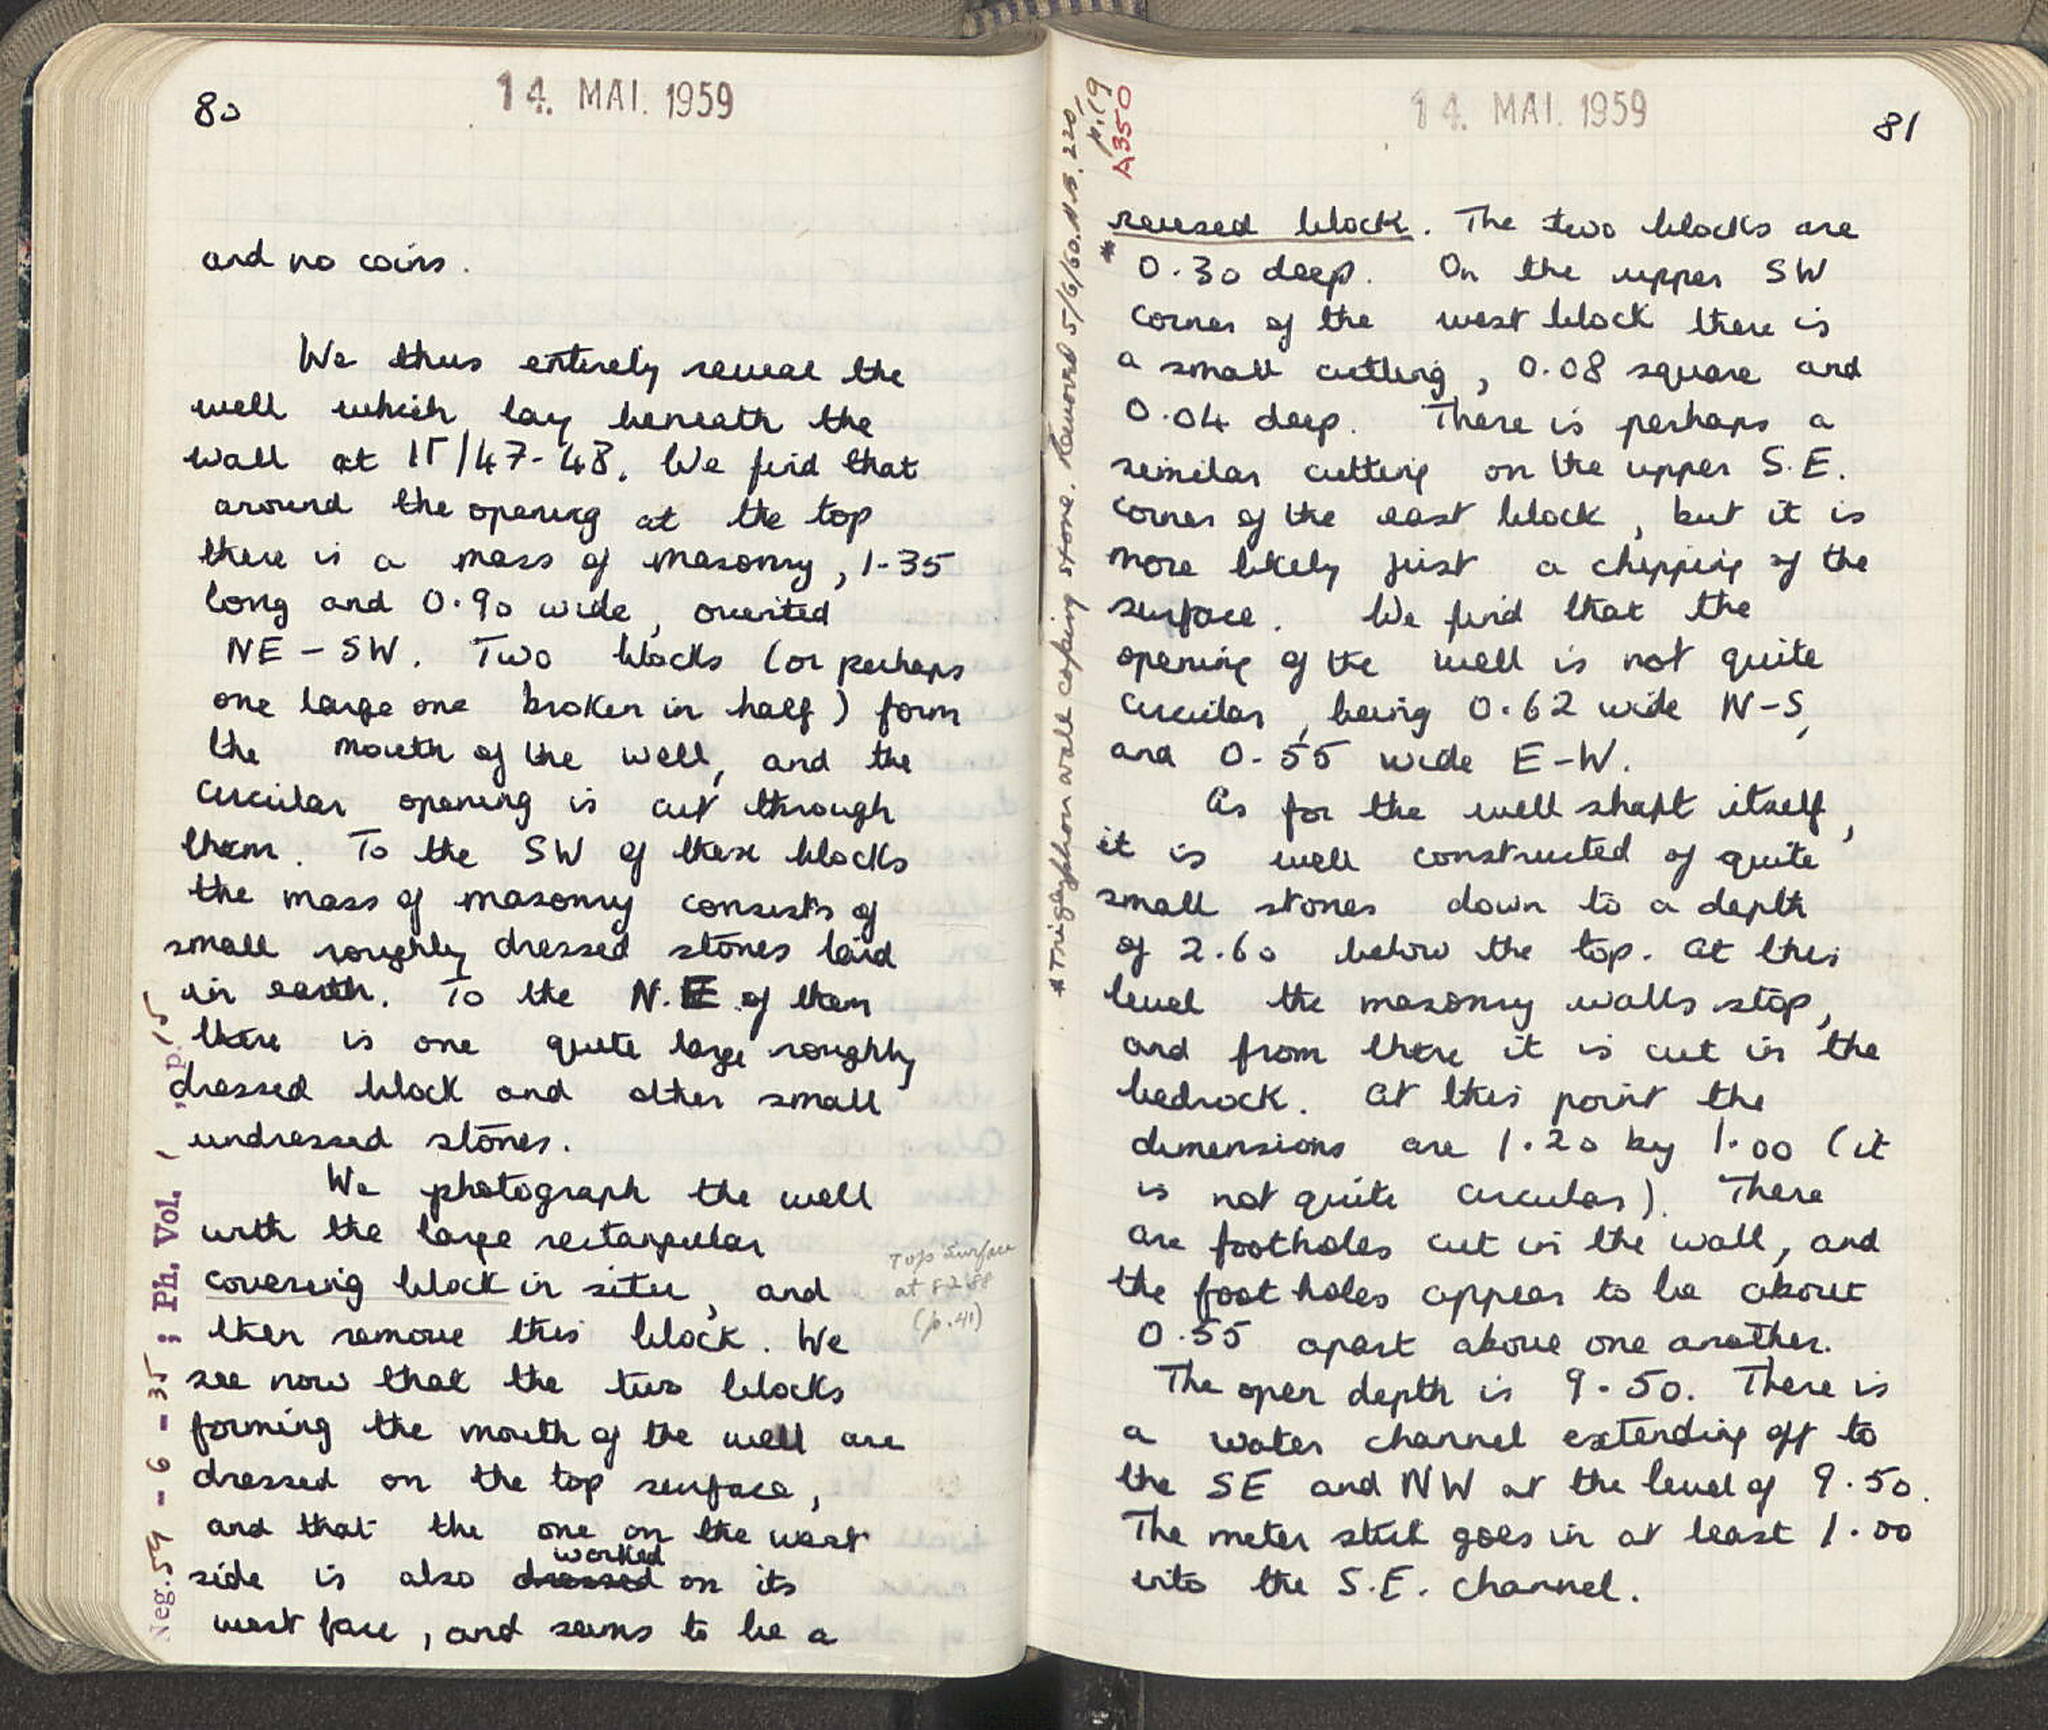 80
14. MAI. 1959
and no coins.
We thus entirely reveal the
well which lay beneath the
wall at 15/47-48. We find that
around the opening at the top
there is a mass of masonry, 1.35
long and 0.90 wide, oriented
NE - SW. Two blocks (or perhaps
one large one broken in half) form
the mouth of the well, and the
circular opening is cut through
them. To the SW of these blocks
the mass of masonry consists of
small roughly dressed stones laid
in earth. To the N.E of them
there is one quite large roughly
dressed block and other small
undressed stones.
We photograph the well
with the large rectangular
covering block in situ, and
then remove this block. We
see now that the two blocks
forming the mouth of the well are
dressed on the top surface,
and that the one on the west
side is also dressed worked on its
west face, and seems to be a
Top surface
at
(p. 41)
Neg. 59 - 6 - 35 ; Ph. Vol. , p. 15
14. MAI. 1959
81
reused block. The two blocks are
* 0.30 deep. On the upper SW
corner of the west block there is
a small cutting, 0.08 square and
0.04 deep. There is perhaps a
similar cutting on the upper S.E.
corner of the east block, but it is
more likely just a chipping of the
surface. We find that the
opening of the well is not quite
circular, being 0.62 wide N-S,
and 0.55 wide E-W.
As for the well shaft itself,
it is well constructed of quite
small stones down to a depth
of 2.60 below the top. At this
level the masonry walls stop,
and from there it is cut in the
bedrock. At this point the
dimensions are 1.20 by 1.00 (it
is not quite circular). There
are footholes cut in the wall, and
the foot holes appear to be about
0.55 apart above one another.
The open depth is 9.50. There is
a water channel extending off to
the SE and NW at the level of 9.50.
The meter stick goes in at least 1.00
into the S.E. channel.
* Triglyphon wall coping stone. Removed 5/6/60. N.B. 220,
p. 19
A350